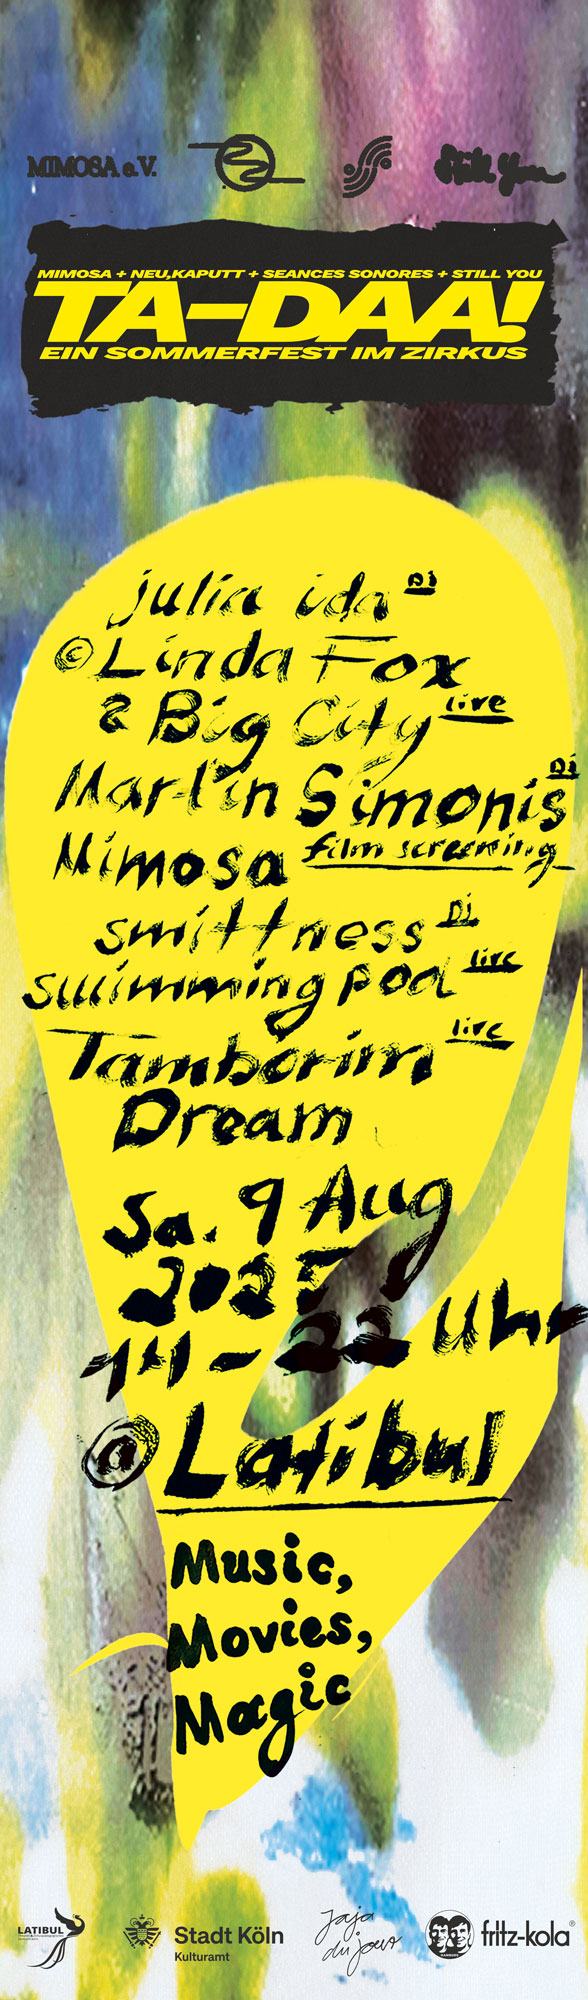 MIMOSA e.V.
Still You
MIMOSA + NEU,KAPUTT + SEANCES SONORES + STILL YOU
TA-DAA!
EIN SOMMERFEST IM ZIRKUS
julia ida DJ
© Linda Fox
& Big City live
Martin Simonis DJ
Mimosa film screening
smittness DJ
swimmingpool live
Tamborim live
Dream
Sa. 9 Aug
2025
14-22 Uhr
@Latibul
Music,
Movies,
Magic
LATIBUL
Stadt Köln
Kulturamt
Jaja
du jour
fritz-kola®
HAMBURG